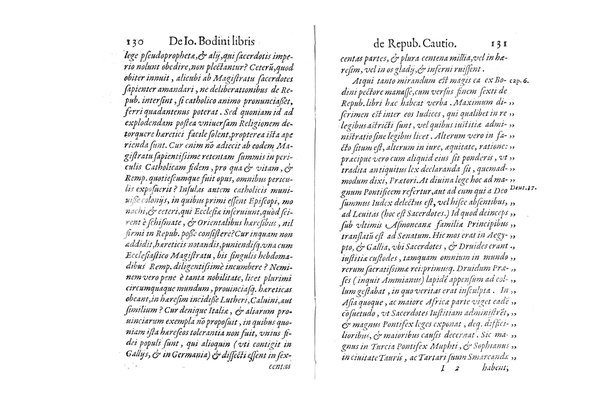 130 De Io. Bodini libris
lege pseudoprophetæ, & alij, qui sacerdotis impe-
rio nolunt obedire, non plectantur? Ceterū, quod
obiter innuit, alicubi ab Magistratu sacerdotes
sapienter amandari, ne deliberationibus de Re-
pub. intersint, si catholico animo pronunciaßet,
ferri quadantenus poterat. Sed quoniam id ad
explodendam postea vniuersam Religionem de-
torquere hæretici facile solent, propterea ista ape
rienda sunt. Cur enim nō adiecit ab eodem Ma-
gistratu sapientissime retentam summis in peri-
culis Catholicam fidem, pro qua & vitam, &
Remp. quotiescumque fuit opus, omnibus pericu-
lis exposuerit? Insulas autem catholicis inmu-
isse colonijs, in quibus primi essent Episcopi, mo
nachi, & ceteri, qui Ecclesiæ inseruiunt, quòd sci-
rent è schismate, & Orientalibus hæresibus, nil
firmi in Repub. posse consistere? Cur inquam non
addidit, hæreticis notandis, puniendisq; vna cum
Ecclesiastico Magistratu, bis singulis hebdoma-
dibus Remp. diligentissimè incumbere? Nemi-
nem vero pene è tanta nobilitate, licet plurimi
circumquaque mundum, prouinciasq. hæreticas
obeant, in hæresim incidisse Lutheri, Caluini, aut
similium? Cur denique Italia, & aliarum pro-
uinciarum exempla nō proposuit, in quibus quo-
niam ista hæreses tolerantia non fuit, vnius fi-
dei populi sunt, qui alioquin (vti contigit in
Gallys, & in Germania) & dissecti essent in sex-
centas
de Repub. Cautio. 131
centas partes, & plura centena millia, vel in hæ-
resim, vel in os gladij, & inferni ruissent.
Atqui tanto mirandum est magis ea ex Bo- cap. 6.
dini pectore manasse, cum versus finem sexti de
Repub. libri hæc habeat verba. Maximum di- „
scrimen est inter eos Iudices, qui quælibet in re „
legibus astricti sunt, vel quibus iustitiæ admi- „
nistratio in omnibus licet. Alterum vero in fa- „
cto situm est, alterum in iure, æquitate, ratione: „
præcipuè vero cum aliquid eius sit ponderis, vt „
tradita antiquitus lex declaranda sit, quemad- „
modum dixi, Prætori. At diuina lege hoc ad ma- „
gnum Pontificem refertur, aut ad eum qui a Deo Deut. 17.
summus Iudex delectus est, vel hisce absentibus, „
ad Leuitas (hoc est Sacerdotes.) Id quod deincep „
sub vltimis Asmoneanæ familiæ Principibus „
translatū est ad Senatum. Hic mos erat in Aegy- „
pto, & Gallia, vbi Sacerdotes, & Druides erant „
iustitiæ custodes, tamquam omnium in mundo „
rerum sacratissimæ rei: primusq. Druidum Præ- „
ses (inquit Ammianus) lapidē appensum ad col- „
lum gestabat, in quo veritas erat insculpta. In „
Asia quoque, ac maiore Africæ parte viget eadē „
cōsuetudo, vt Sacerdotes Iustitiam administrēt, „
& magnus Pontifex leges exponat, deq. difficé- „
lioribus, & maioribus causis decernat. Sic ma- „
gnus in Turcia Pontifex Muphti, & Sophianus „
in ciuitate Tauris, ac Tartari suum Smarcandæ „
I 2 habent,